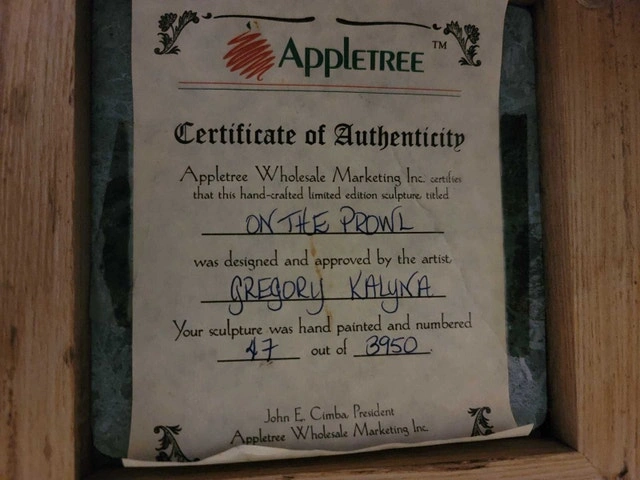 APPLETREE ™
Certificate of Authenticity
Appletree Wholesale Marketing Inc. certifies
that this hand-crafted limited edition sculpture, titled
ON THE PROWL
was designed and approved by the artist,
GREGORY KALYNA
Your sculpture was hand painted and numbered
47 out of 3950.
John E. Cimba, President
Appletree Wholesale Marketing Inc.